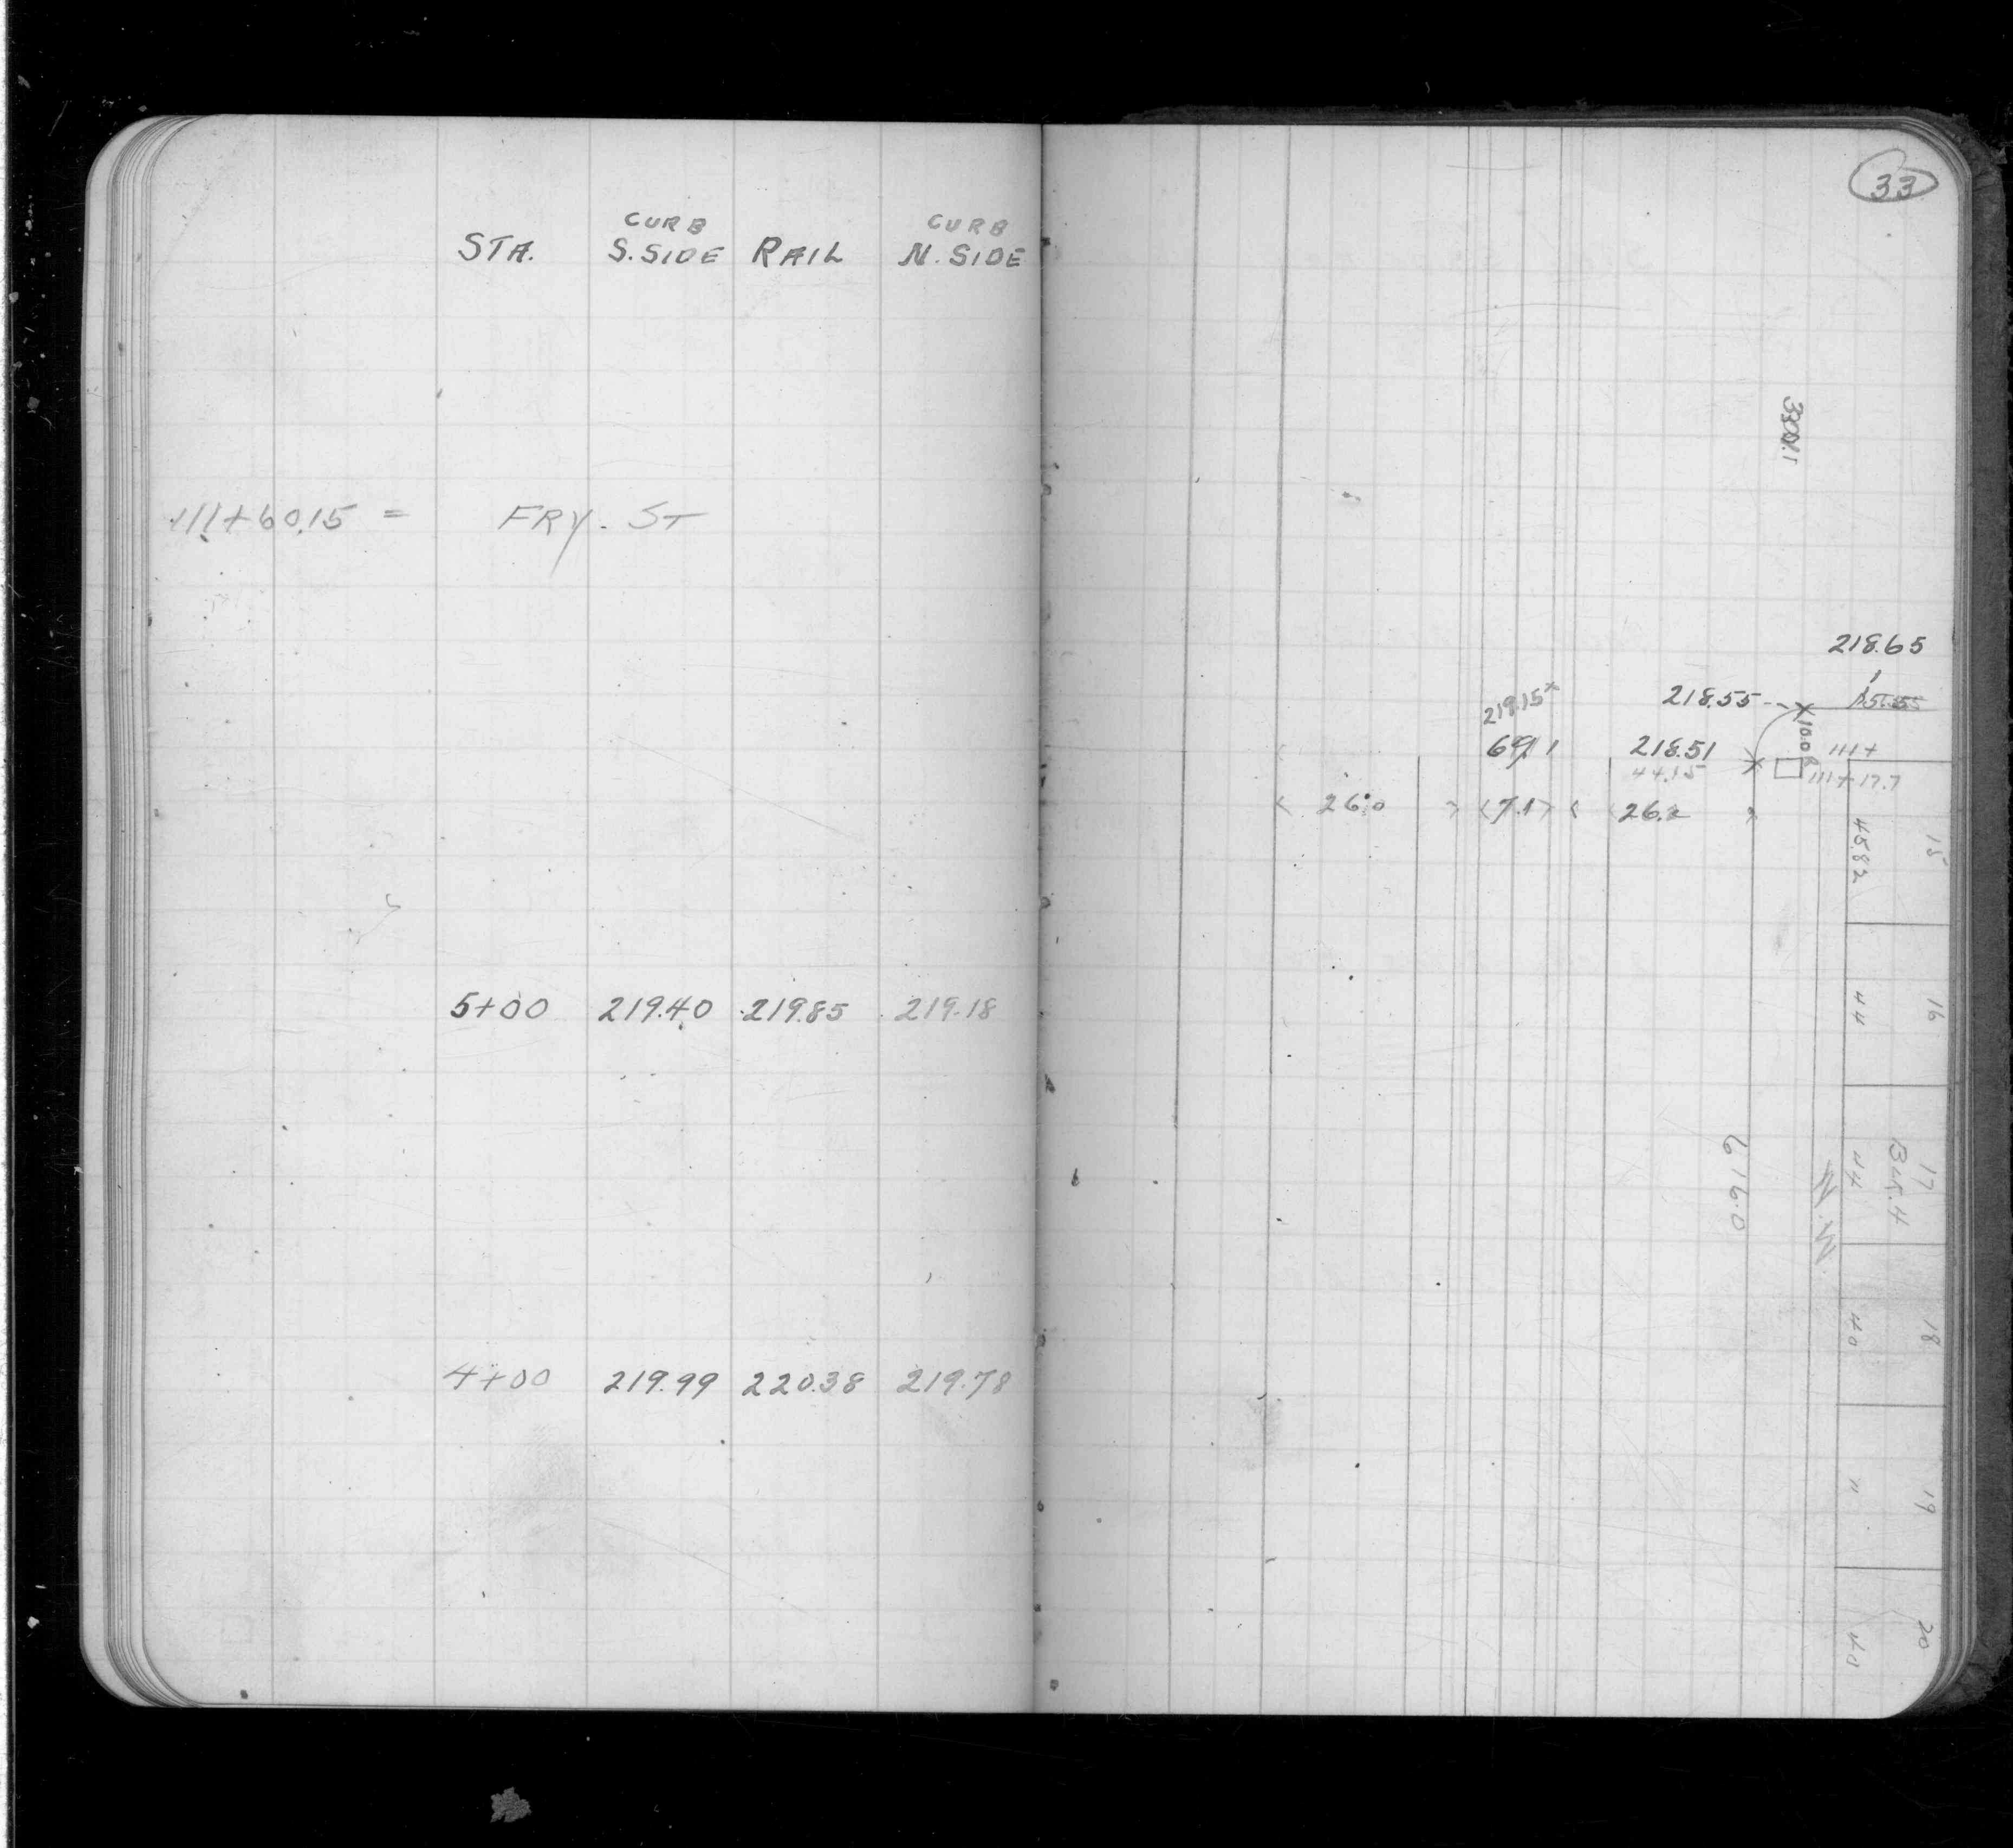 33
CURB CURB
STA. S.SIDE RAIL N.SIDE
111+60.15 = FRY. ST
218.65
219.15 218.55
218.51 10.0R 111+
44.15 111+17.7
26.0 7.1 26.2
45.82 15
5+00 219.40 219.85 219.18
44 16
616.0
44 Blk.4 17
40 18
4+00 219.99 220.38 219.78
" 19
40 20